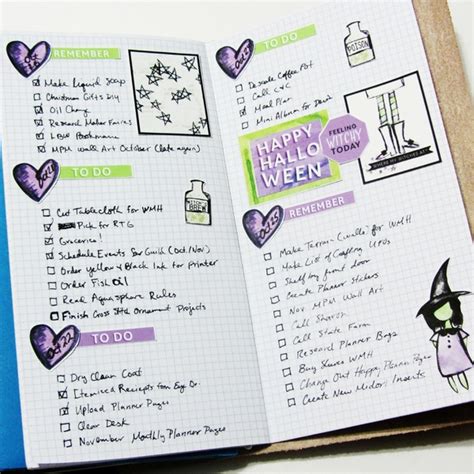 REMEMBER
Make Liquid Soap
Christmas Gifts Diy
Oil Change
Research Maker Faires
LBW Bookmarks
MPM Wall Art October (late again)
TO DO
Cut Tablecloth for WMH
Pick for RTG
Groceries!
Schedule Events for Guild (Oct/Nov)
Order Yellow & Black Ink for Printer
Order Fish Oil
Read Aquasphere Rules
Finish Cross Stitch Ornament Projects
WITCH BREW
Oct 22
TO DO
Dry Clean Coat
Itemized Receipts from Eye Dr.
Upload Planner Pages
Clear Desk
November Monthly Planner Pages
TO DO
Descale Coffee Pot
Call CVC
Meal Plan
Mini Album for David
POISON
HAPPY HALLOWEEN
FEELING WITCHY TODAY
Oct 25
REMEMBER
Make Terrain (walls) for WMH
Make List of Crafting UFOs
Shelf by front door
Create Planner Stickers
Nov. MPM Wall Art
Call Sharon
Call State Farm
Research Planner Bags
Buy Shoes WMH
Change Out Happy Planner Pages
Create New Midori Inserts